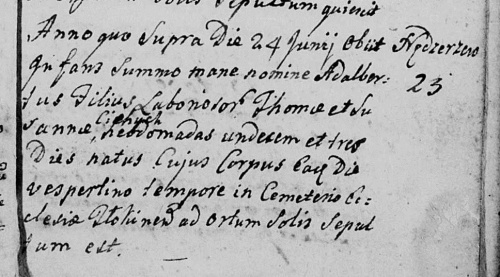 Sepultum quievit
Anno quo Supra Die 24 Junij Obiit
Infans Summo mane nomine Adalber-
tus Filius Laboriosor. Thomæ et Su
sannæ Cichych hebdomadas undecem et tres
Dies natus Cujus Corpus Eaq Die
vespertino tempore in Cemeterio Ec-
clesiæ ad Ortum Solis Sepul
tum est.
23